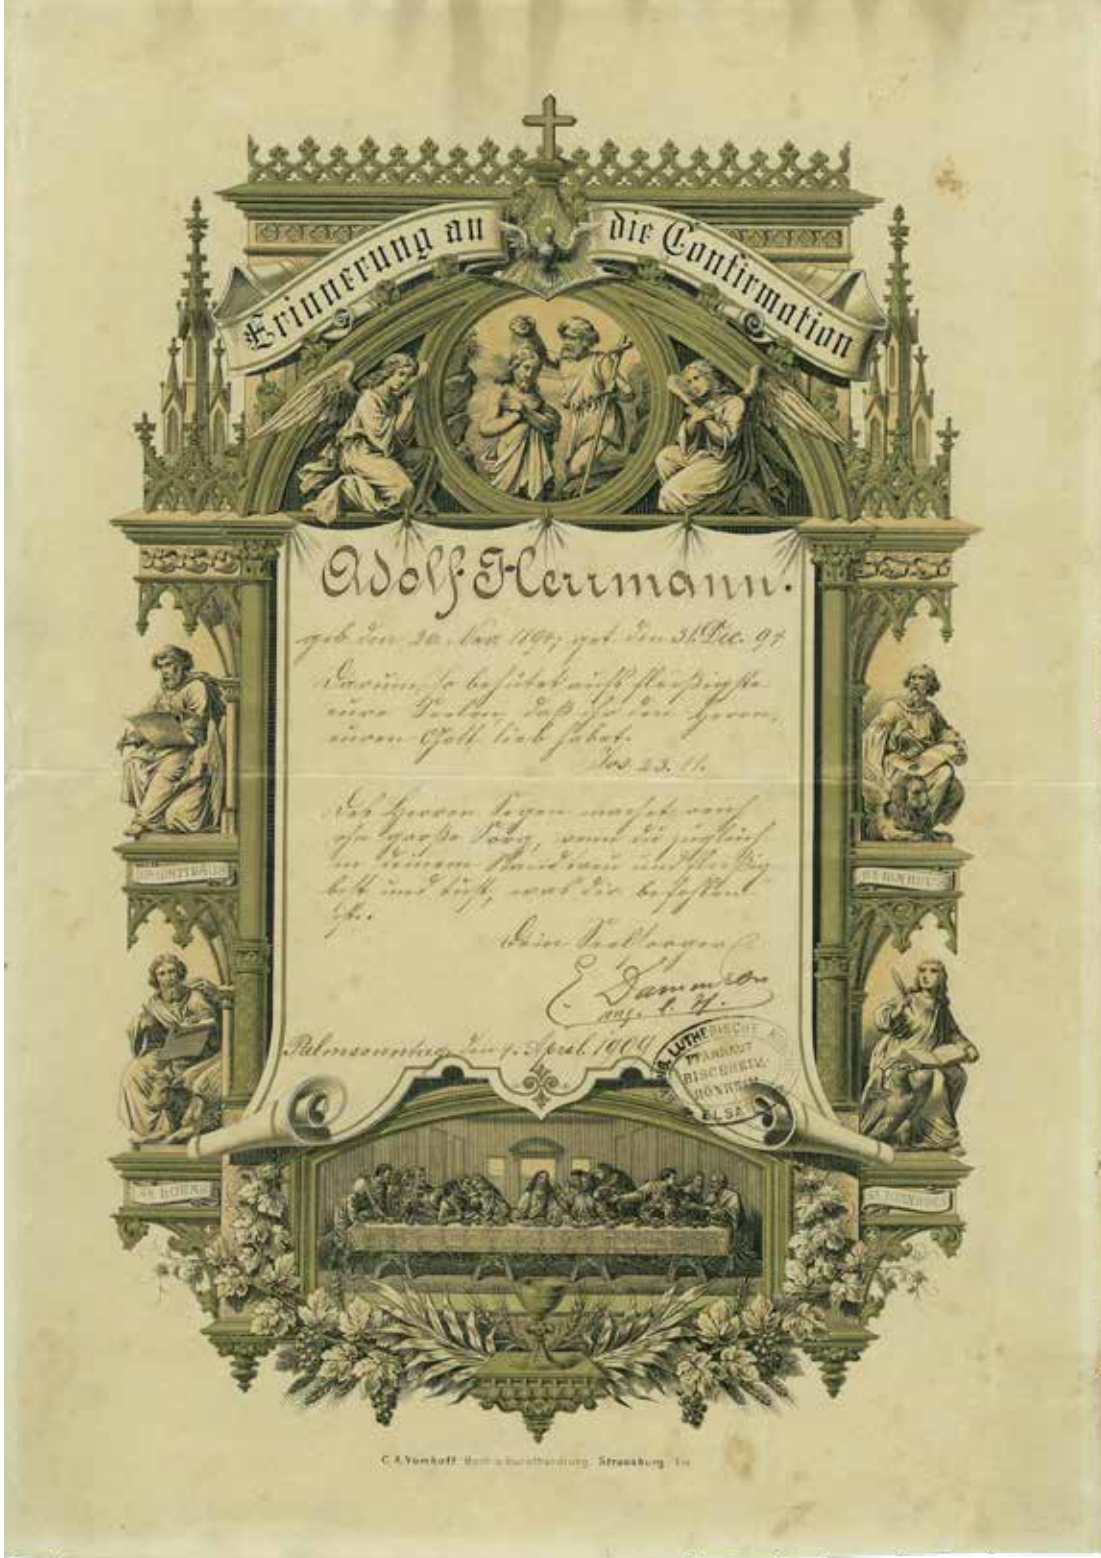 Erinnerung an die Confirmation
Adolf Herrmann.
geb den 20. Nov. 1894, get. den 31. Dec. 94
Darum so behütet aufs fleißigste
eure Seelen, daß ihr den Herrn,
euren Gott lieb habet.
Jos. 23. 11.
Des Herren Segen machet reich
ohn große Sorg, wenn du zugleich
in deinem Stand treu und fleißig
bist und tust, was dir befohlen
ist.
Dein Seelsorger
E.
Palmsonntag, den 4. April 1909
LUTHERISCHE
PFARRAMT
BISCHHEIM
HÖNHEIM
ELSA
ST. MATTHÄUS
ST. MARKUS
ST. LUKAS
ST. JOHANNES
C. A. Vomhoff Buch- u. Kunsthandlung, Strassburg